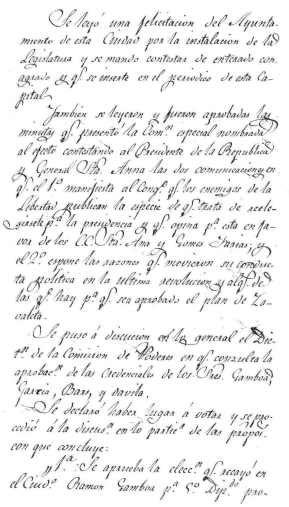 Se leyó una felicitacion del Ayunta-
miento de esta Ciudad por la instalacion de la
Legislatura y se mandó contestar de enterado con
agrado y q.e se inserte en el periodico de esta Ca-
pital.
Tambien se leyeron y fueron aprobadas las
minutas q.e presentó la Com.n especial nombrada
al efecto contestando al Presidente de la Republica
y General Sta. Anna las dos comunicaciones en
q.e el 1.o manifiesta al Cong.o q.e los enemigos de la
Libertad publican la especie de q.e trata de
p.a la presidencia y q.e opina p.r esta en fa-
vor de los CC. Sta. Ana y Gomes Farias; y
el 2.o espone las razones q.e movieron su conduc-
ta política en la ultima revolucion y alg.s de
las q.e hay p.a q.e sea aprobado el plan de Za-
valeta.
Se pusó á discucion en lo general el Dic-
t.n de la Comicion de Poderes en q.e consulta la
aprobac.n de las Credenciales de los Sres. Gamboa,
Garcia, Bars, y davila.
Se declaró haber lugar á votar y se pro-
cedió á la discus.n en lo partic.r de las propos.
con que concluye:
„ 1.a: Se aprueba la elecc.n q.e recayó en
el Ciud.o Ramon Gamboa p.a 5.o Dip.do pro-